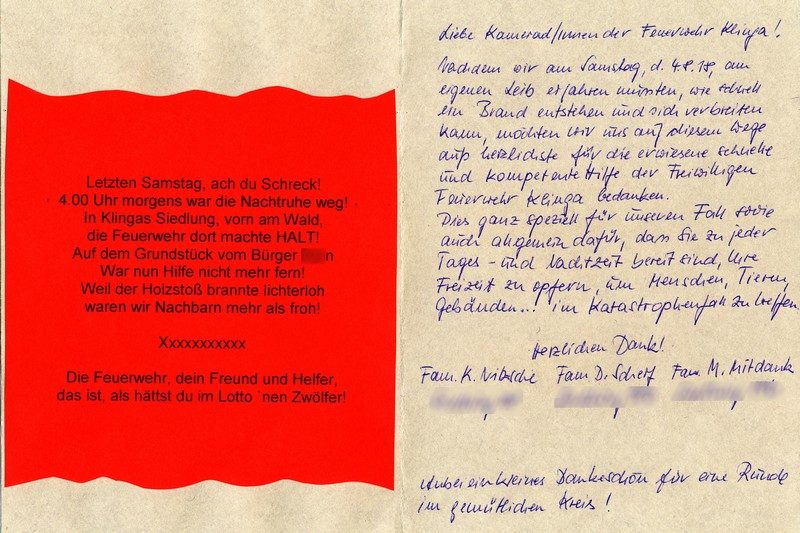 Letzten Samstag, ach du Schreck!
4.00 Uhr morgens war die Nachtruhe weg!
In Klingas Siedlung, vorn am Wald,
die Feuerwehr dort machte HALT!
Auf dem Grundstück vom Bürger n
War nun Hilfe nicht mehr fern!
Weil der Holzstoß brannte lichterloh
waren wir Nachbarn mehr als froh!
Xxxxxxxxxxx
Die Feuerwehr, dein Freund und Helfer,
das ist, als hättst du im Lotto `nen Zwölfer!
Liebe Kamerad/Innen der Feuerwehr Klinga!
Nachdem wir am Samstag, d. 4.8.18, am
eigenen Leib erfahren mussten, wie schnell
ein Brand entstehen und sich verbreiten
kann, möchten wir uns auf diesem Wege
aufs herzlichste für die erwiesene schnelle
und kompetente Hilfe der Freiwilligen
Feuerwehr Klinga bedanken.
Dies ganz speziell für unseren Fall sowie
auch allgemein dafür, dass Sie zu jeder
Tages- und Nachtzeit bereit sind, Ihre
Freizeit zu opfern, um Menschen, Tieren,
Gebäuden... im Katastrophenfall zu helfen.
Herzlichen Dank!
Fam. K. Nitzsche Fam. D. Scherf Fam. M. Mitdank
Anbei ein kleines Dankeschön für eine Runde
im gemütlichen Kreis!